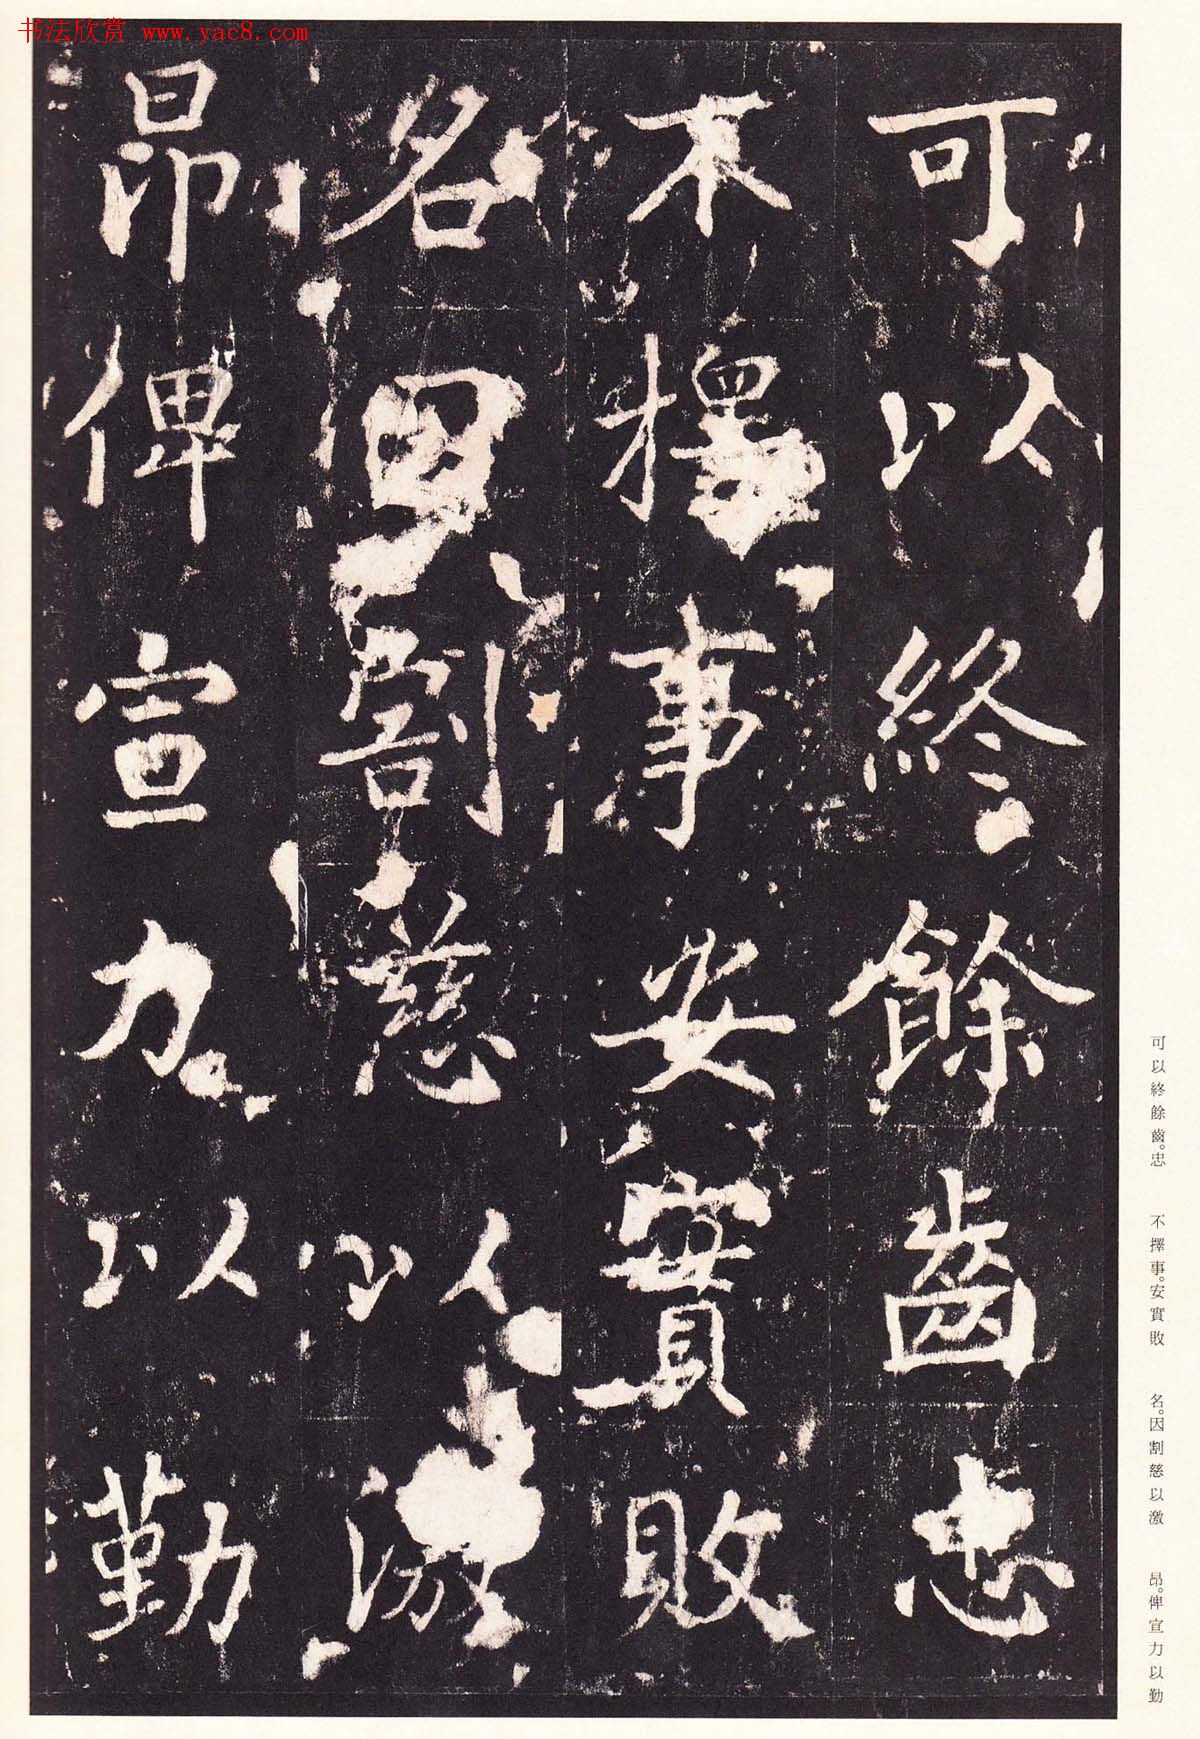 书法欣赏 www.yac8.com
可以終餘齒忠
不擇事安實敗
名因割慈以激
昂俾宣力以勤
可以終餘齒。忠　不擇事。安實敗　名。因割慈以激　昂。俾宣力以勤